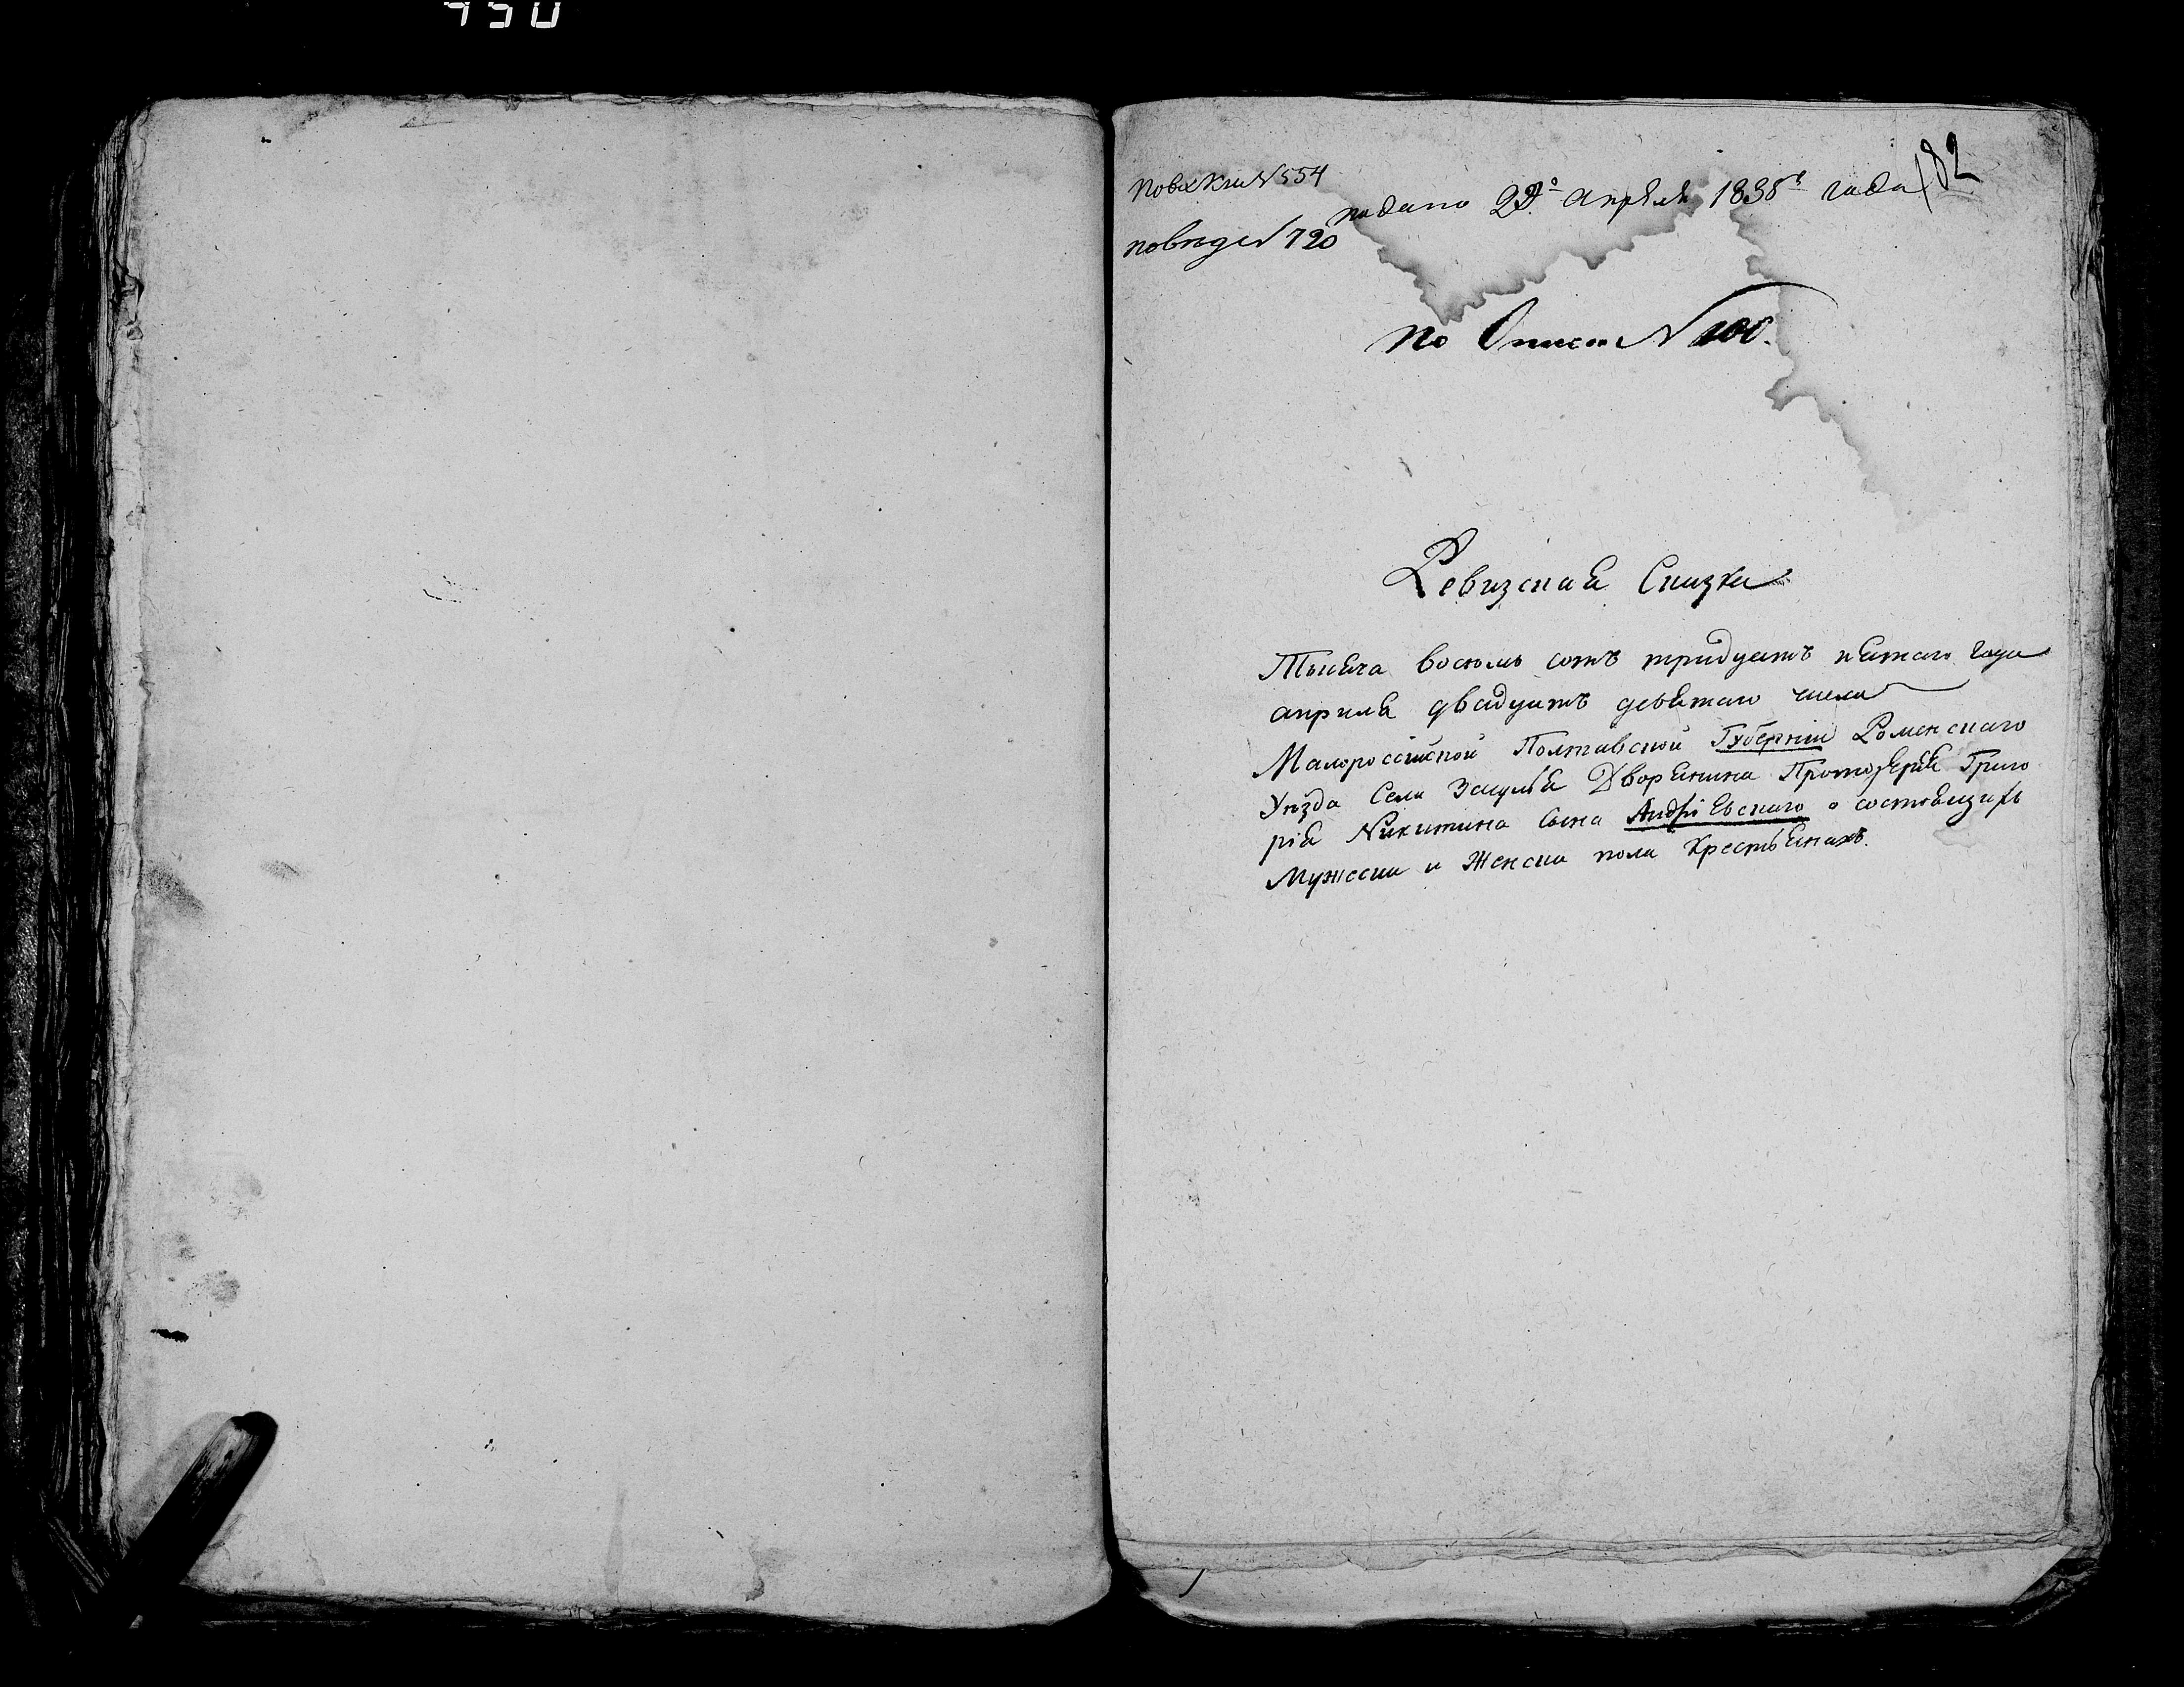 450
182
По вх Кни № 554
подано 29º апреля 1835º года
по вход № 790
По Описи № 100.
Ревизская Сказка
Тысяча восемь сотъ тридцять пятаго года
априля двадцать девятаго числа
Малороссийской Полтавской Губернии Роменскаго
Уѣзда Села Засулья Дворянина Протоіерея Григо
рія Никитина Сына Андріевскаго о состоящихъ
Мужеска и Женска пола Крестьянахъ.